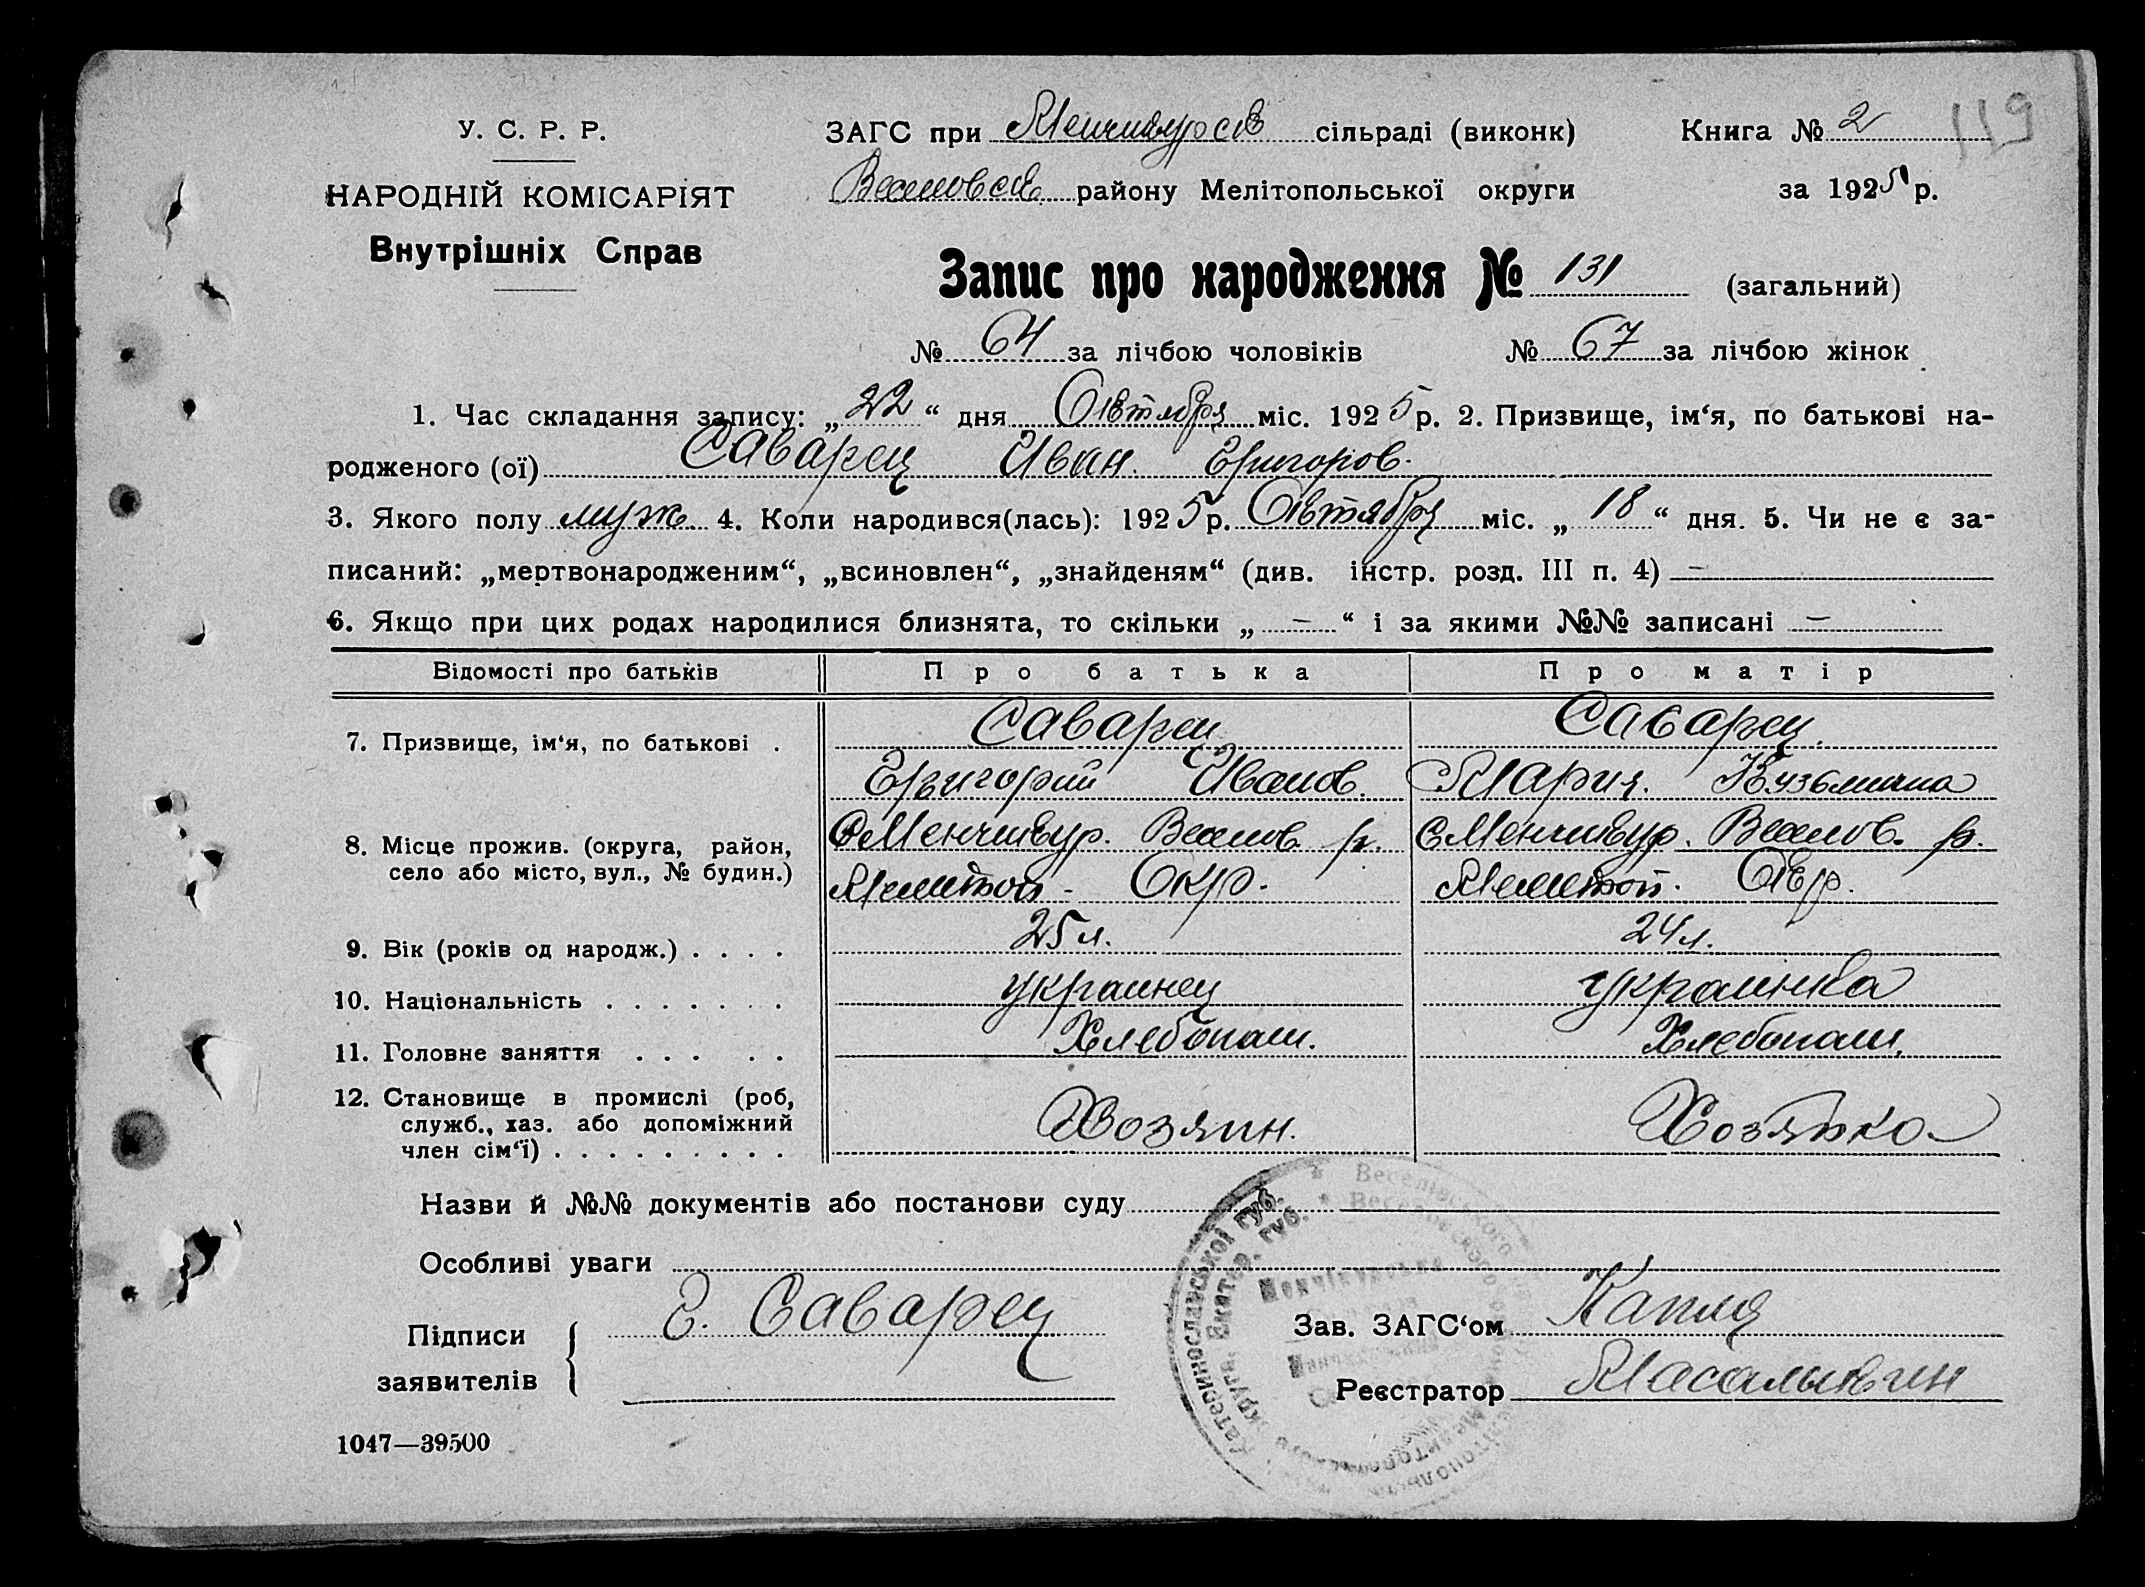 119
У. С. Р. Р.
НАРОДНІЙ КОМІСАРІЯТ
Внутрішніх Справ
ЗАГС при Менчикурсов сільраді (виконк) Книга № 2
Веселовск району Мелітопольської округи за 1925 р.
Запис про народження № 131 (загальний)
№ 64 за лічбою чоловіків № 67 за лічбою жінок
1. Час складання запису: „22“ дня Октября міс. 1925 р. 2. Призвище, ім‘я, по батькові на-
родженого (ої) Саварец Иван Григоров.
3. Якого полу муж. 4. Коли народився(лась): 1925 р. Октября міс. „18“ дня. 5. Чи не є за-
писаний: „мертвонародженим“, „всиновлен“, „знайденям“ (див. інстр. розд. III п. 4) –
6. Якщо при цих родах народилися близнята, то скільки „ – “ і за якими №№ записані –
Відомості про батьків Про батька Про матір
7. Призвище, ім‘я, по батькові . Саварец Саварец
Григорий Иванов. Мария Кузьминична
8. Місце прожив. (округа, район, село або місто, вул., № будин.) С Менчикур. Веселов. р. С Менчикур. Веселов. р.
Мелитоп. Окр. Мелитоп. Окр.
9. Вік (років од народж.) . . . . 25 л. 24 л.
10. Національність . . . . . . . украинец украинка
11. Головне заняття . . . . . Хлебопаш. Хлебопаш.
12. Становище в промислі (роб, служб., хаз. або допоміжний член сім‘ї) . . . . . . . . . Хозяин. Хозяйка
Назви й №№ документів або постанови суду
Особливі уваги
Підписи заявителів Г. Саварец
Зав. ЗАГС‘ом Капля
Реєстратор
1047—39500